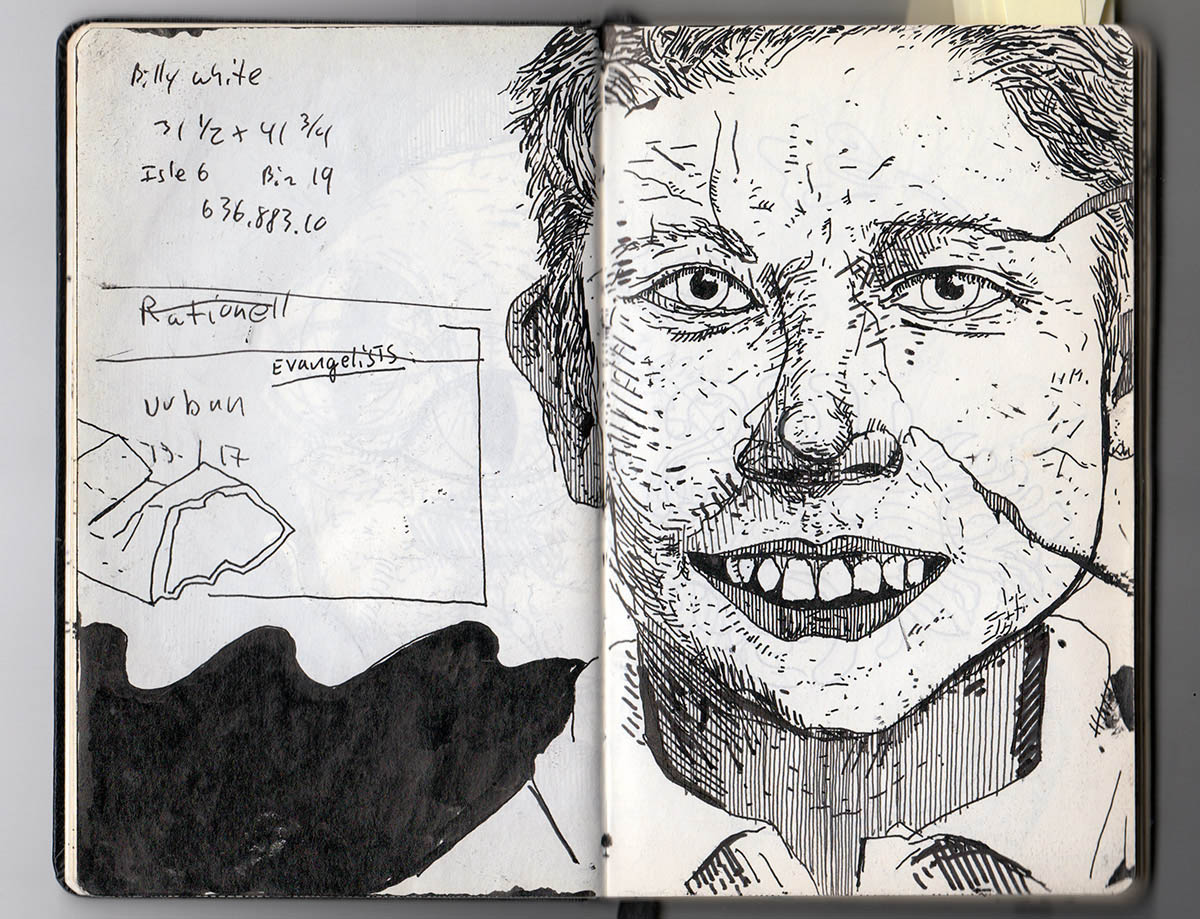 Billy white
31 1/2 x 41 3/4
Isle 6 Bin 19
636.883.10
Rationell
Evangelists
vvbun